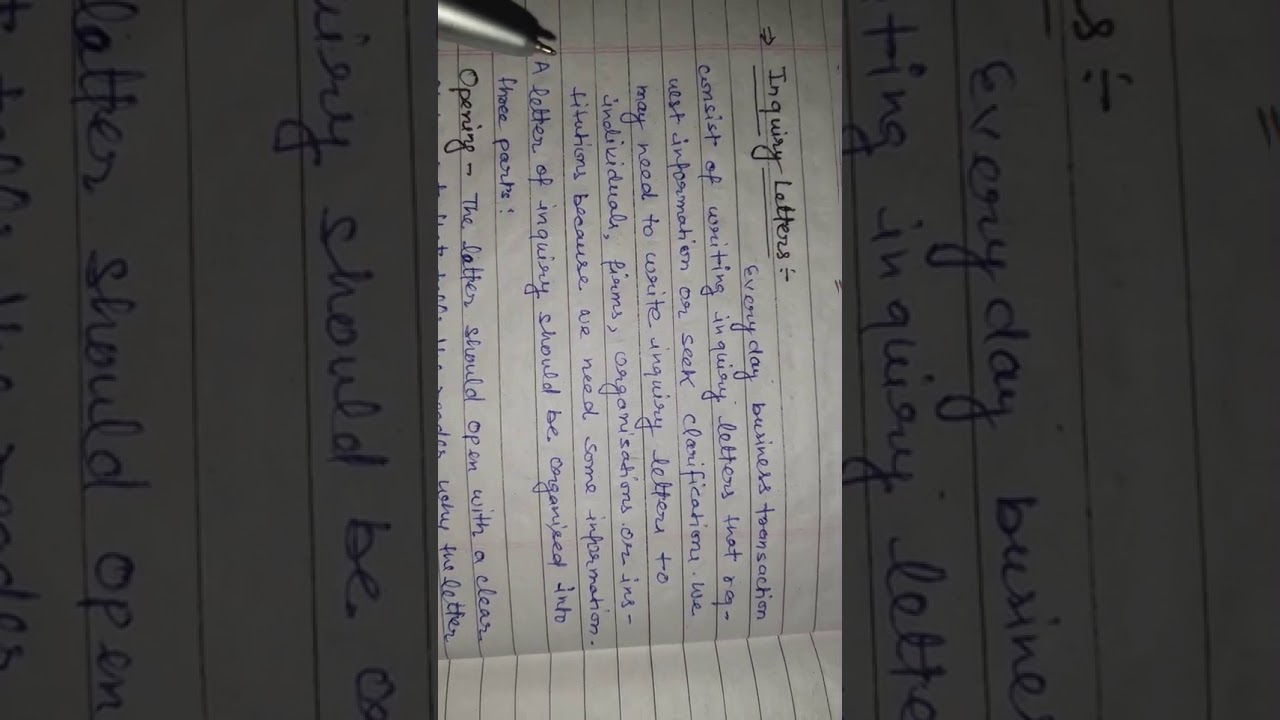 ⇒ Inquiry Letters :-
Everyday business transaction
consist of writing inquiry letters that req-
uest information or seek clarification. We
may need to write inquiry letters to
individuals, firms, organisations or ins-
titutions because we need some information.
A letter of inquiry should be organised into
three parts:
Opening - The latter should open with a clear
the reader why the letter